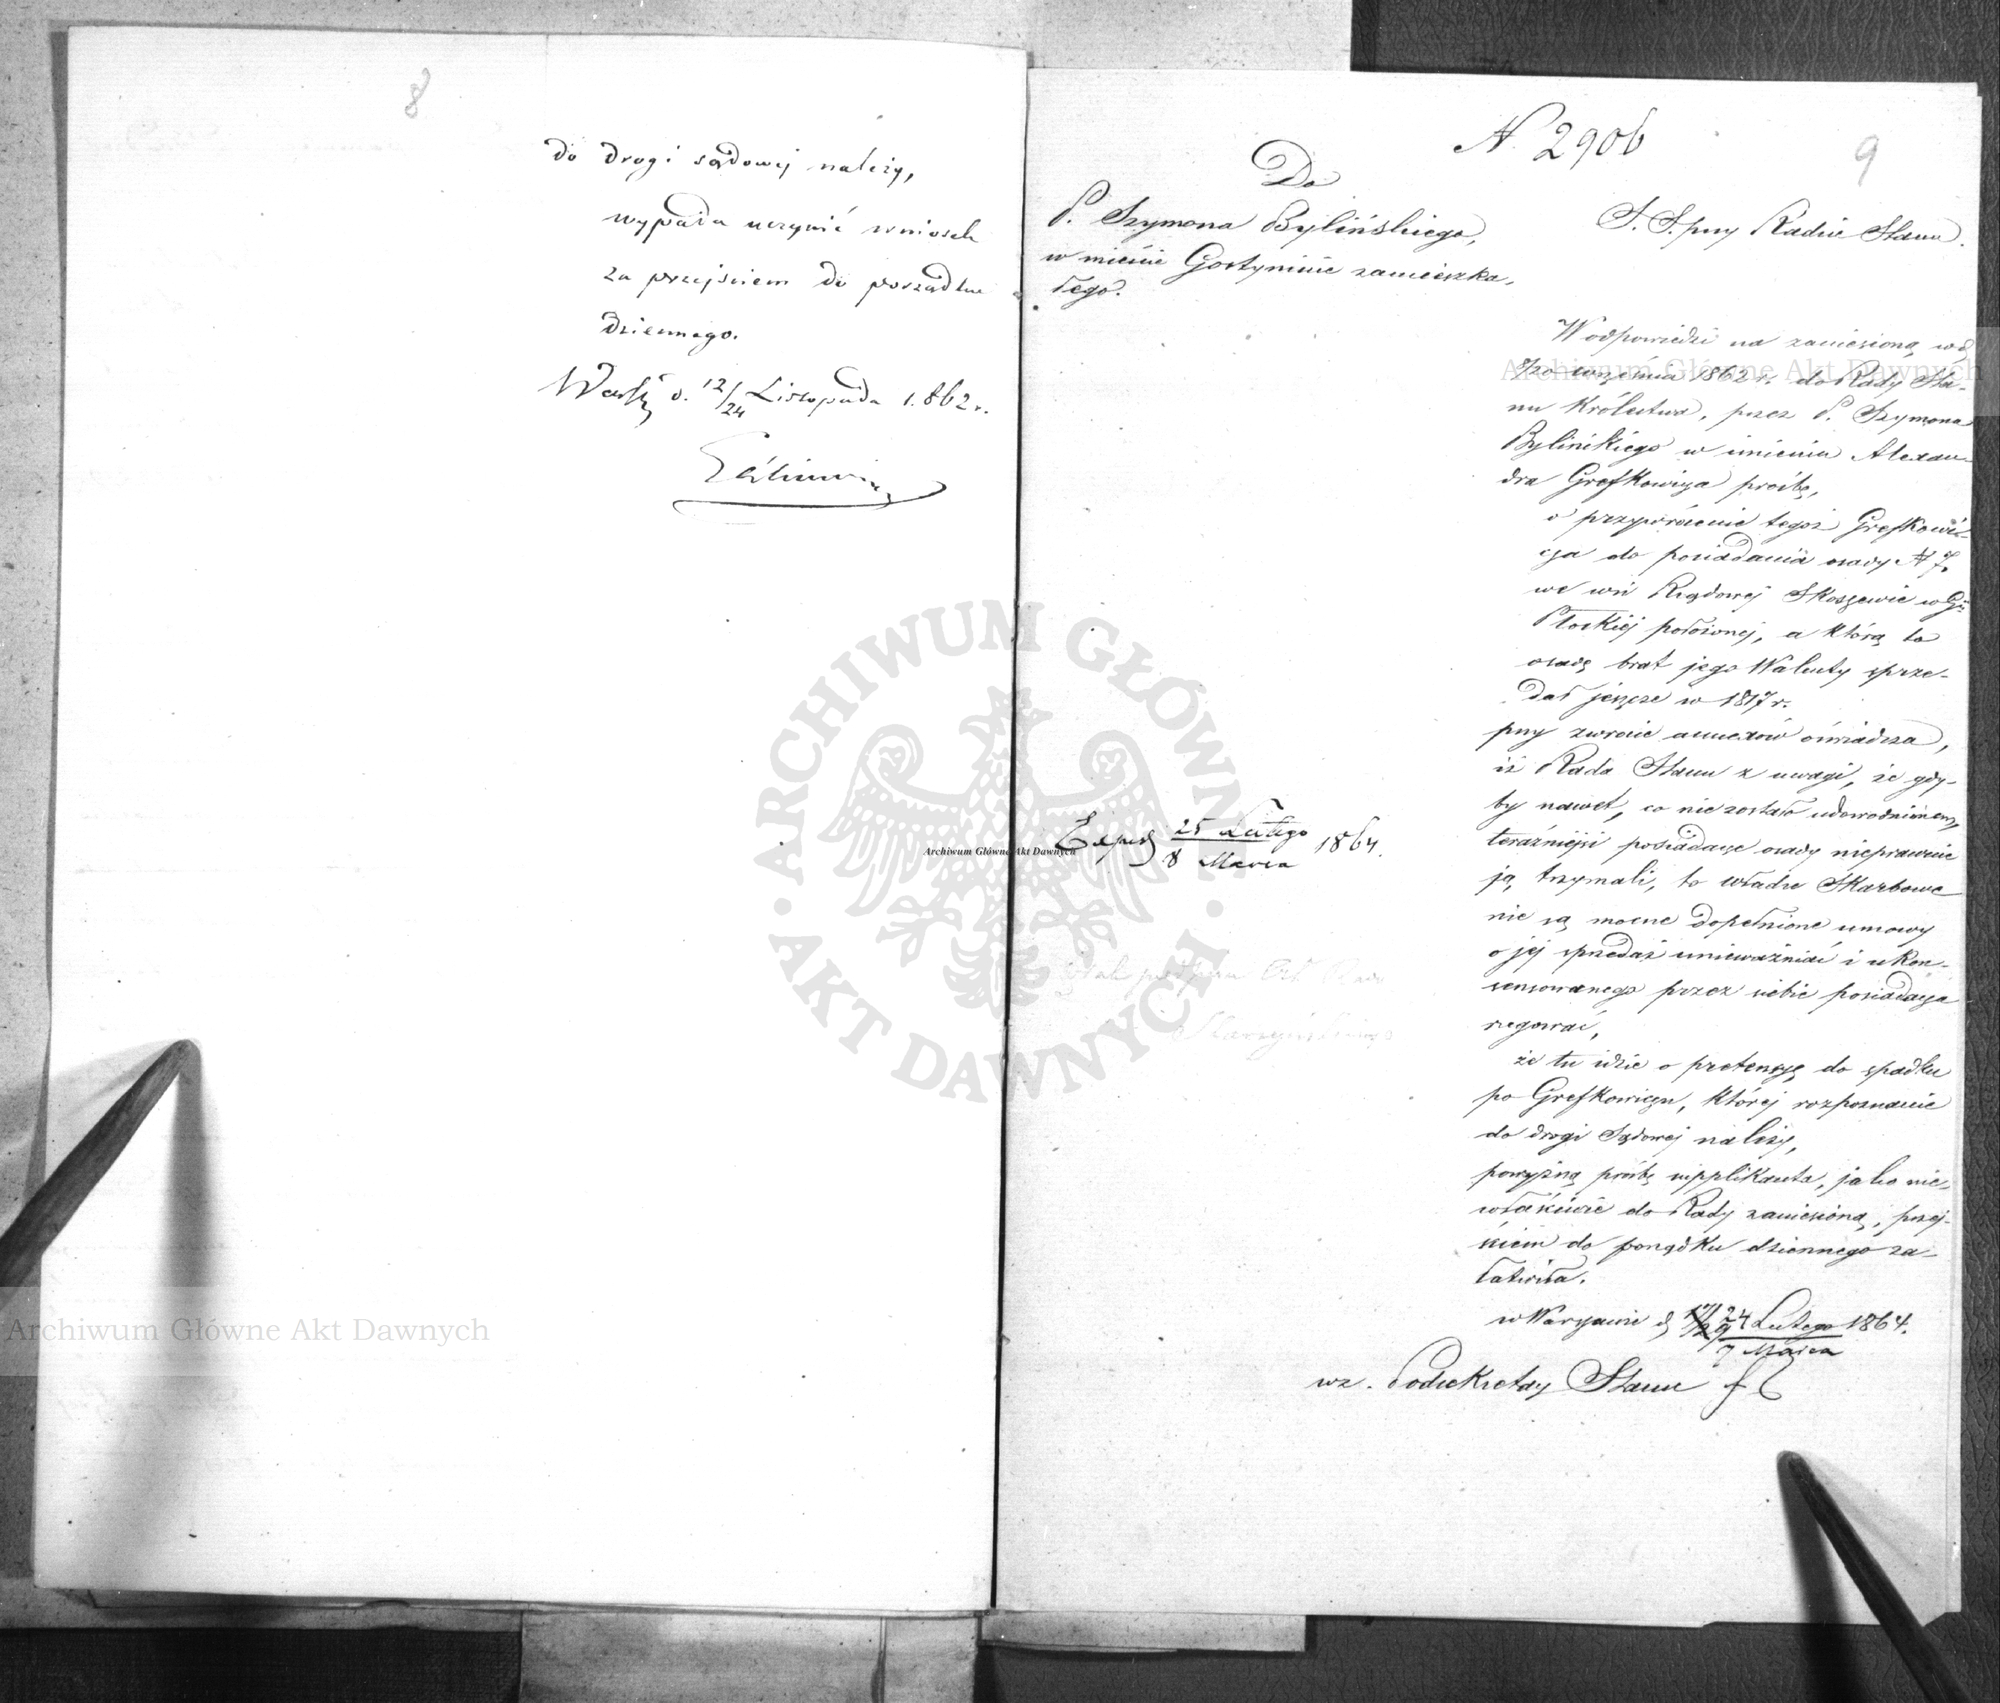 8
do drogi sądowej należy,
wypada uczynić wniosek
za przejściem do porządku
dziennego.
d. 12/24 Listopada 1862 r.
N 2906
9
Do
P. Szymona Bylińskiego,
w mieście Gostyninie zamieszka-
łego.
S. S. przy Radzie Stanu.
W odpowiedzi na zaniesioną w d.
8/20 września 1862 r. do Rady Sta-
nu Królestwa, przez P. Szymona
Bylińskiego w imieniu Alexan-
dra Grefkowicza prośbę,
o przywrócenie tegoż Grefkowi-
cza do posiadania osady N 7.
we wsi Rządowej Skoszewie w Gu.
Płockiej położonej, a którą to
osadę brat jego Walenty sprze-
dał jeszcze w 1817 r.
przy zwrocie annexów oświadcza,
iż Rada Stanu z uwagi, że gdy-
by nawet, co nie zostało udowodnionem,
teraźniejsi posiadacze osady nieprawnie
ją trzymali, to władze Skarbowe
nie są mocne dopełnione umowy
o jej sprzedaż unieważniać i ukon-
sensowanego przez siebie posiadacza
rugować,
że tu idzie o pretensyę do spadku
po Grefkowiczu, której rozpoznanie
do drogi Sądowej należy,
powyższą prośbę supplikanta, jako nie-
właściwie do Rady zaniesioną, przej-
ściem do porządku dziennego za-
łatwiła.
w Warszawie d. 24 Lutego 1864.
7 Marca
wz. Podsekretarz Stanu
Exped. 25 Lutego 1864.
8 Marca
Archiwum Główne Akt Dawnych
Archiwum Główne Akt Dawnych
Archiwum Główne Akt Dawnych
ARCHIWUM GŁÓWNE AKT DAWNYCH